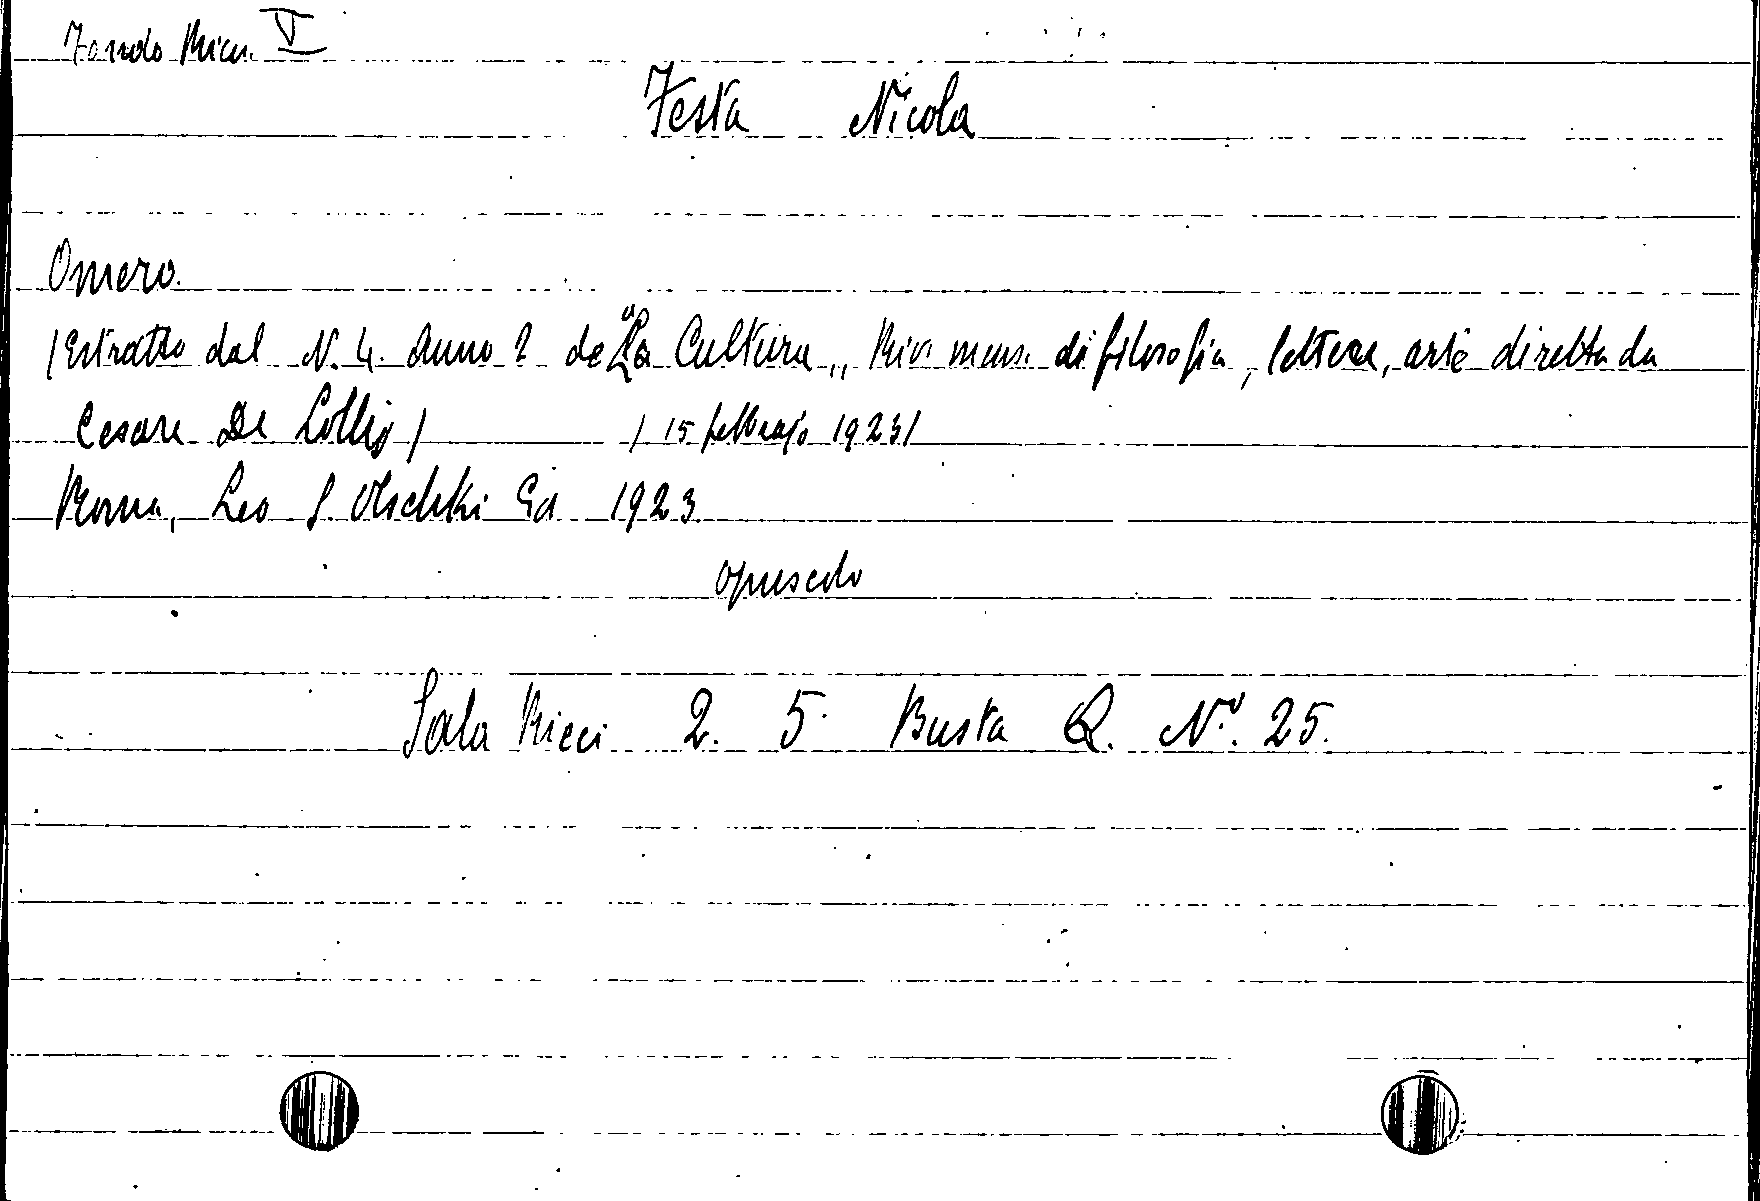 Fondo Ricci I
Festa Nicola
Omero.
(Estratto dal N. 4. Anno 2 de "La Cultura„ Riv. mens. di filosofia, lettere, arte diretta da
Cesare De Lollis) (15 febbraio 1923)
Roma, Leo S. Olschki Ed 1923
opuscolo
Sala Ricci 2. 5. Busta Q. N.º 25.